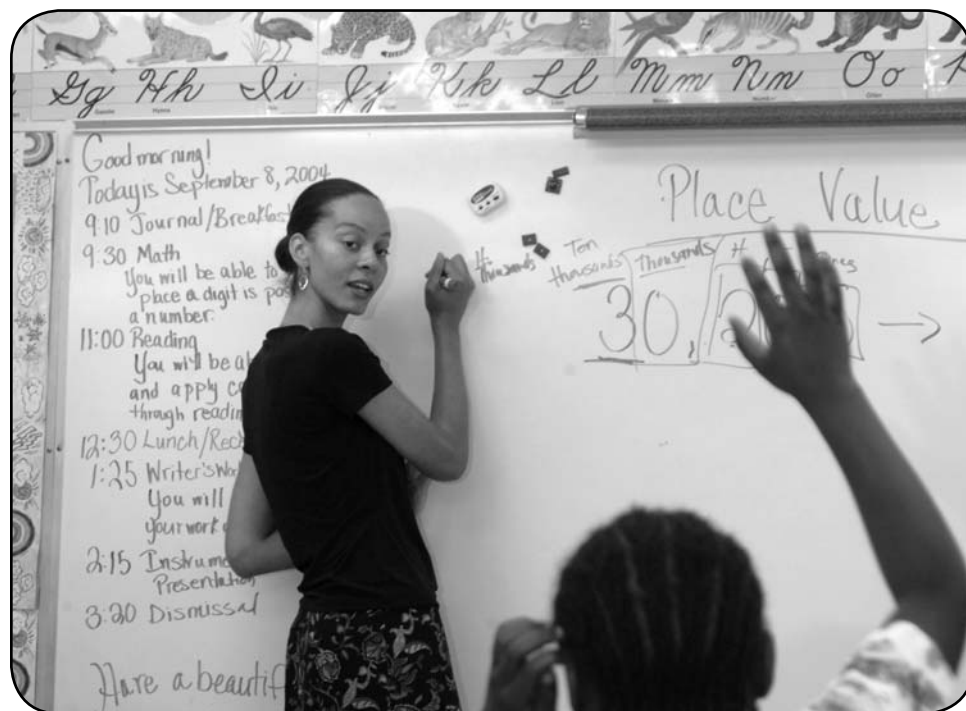 Gg Hh Ii Jj Kk Ll Mm Nn Oo
Good morning!
Today is September 8, 2004
9:10 Journal/Breakfast
9:30 Math
You will be able to
place a digit is
a number.
11:00 Reading
You will be
and apply
through
12:30 Lunch/
1:25 Writer's
You will
your work
2:15
Presentation
3:20 Dismissal
Have a
Place Value
H. Thousands
Ten Thousands
Thousands
H
30,